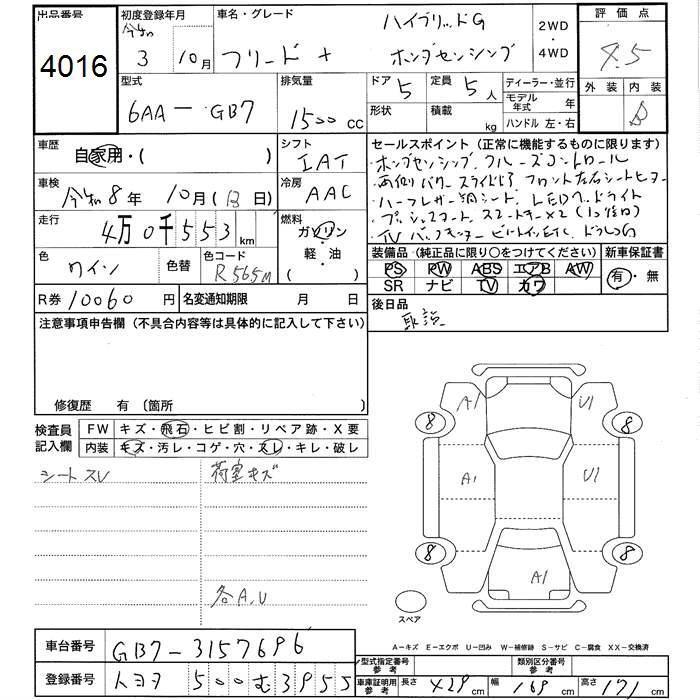 出品番号
4016
初度登録年月
令和 3 10月
車名・グレード
フリード +
ハイブリッドG
ホンダセンシング
2WD
・
4WD
評価点
4.5
外装 内装
B
型式
6AA - GB7
排気量
1500 cc
ドア 5
定員 5人
ディーラー・並行
モデル年式 年
形状
積載 kg
ハンドル 左・右
車歴
自家用・( )
シフト
IAT
車検
令和 8年 10月(13日)
冷房
AAC
走行
4万0千553km
燃料
ガソリン
・
軽・油
( )
色
ワイン
色替
色コード
R565M
R券 10060円
名変通知期限 月 日
セールスポイント(正常に機能するものに限ります)
・ホンダセンシング クルーズコントロール
・両側パワースライドドア フロント左右シートヒーター
・ハーフレザー調シート LEDヘッドライト
・プッシュスタート スマートキー×2
・TV バックモニター ビルトインETC ドラレコ
装備品(純正品に限り○をつけてください)
PS PW ABS エアB AW
SR ナビ TV カワ
新車保証書
有・無
後日品
取説
注意事項申告欄(不具合内容等は具体的に記入して下さい)
修復歴 有 (箇所 )
検査員
記入欄
FW キズ・飛石・ヒビ割・リペア跡・X要
内装 キズ・汚レ・コゲ・穴・スレ・キレ・破レ
シートスレ
荷室キズ
各A.U
A1
U1
8
8
A1
U1
8
8
A1
スペア
A－キズ E－エクボ U－凹み W－補修跡 S－サビ C－腐食 XX－交換済
車台番号
GB7-3157696
登録番号
トヨタ 500 む 3955
型式指定番号
参考
類別区分番号
参考
車庫証明用
参考
長さ 429 cm
幅 169 cm
高さ 171 cm